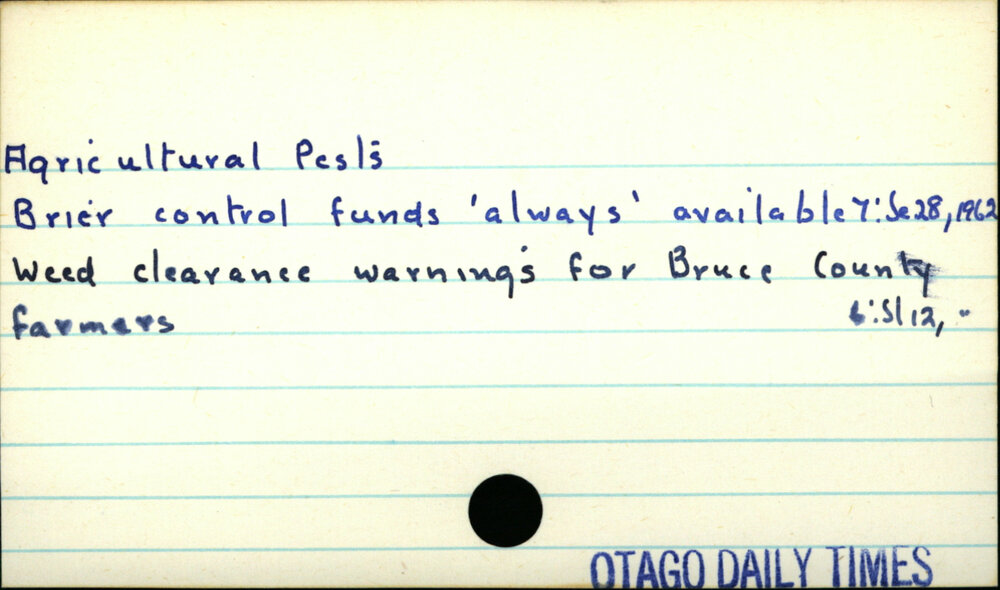 Agricultural Pests
Brier control funds 'always' available 7:Se 28, 1962
Weed clearance warnings for Bruce County
farmers 6:Sl 12, "
OTAGO DAILY TIMES